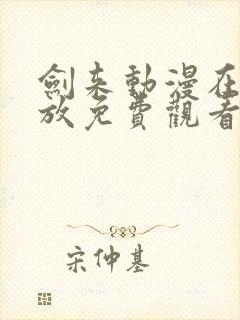 劍来動漫在
放免費觀看
宋仲基